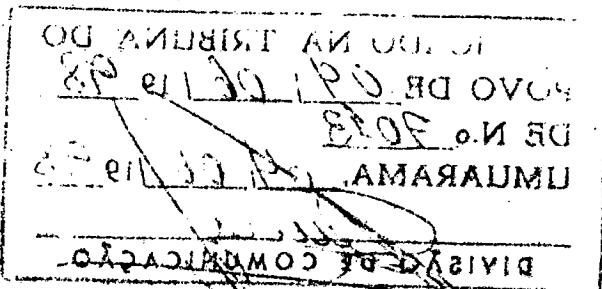 NA TRIBUNA DO
POVO DE 09 / 06 / 19 98
DE N.o 7013
UMUARAMA, 09 / 06 / 19 98
DIVISÃO DE COMUNICAÇÃO